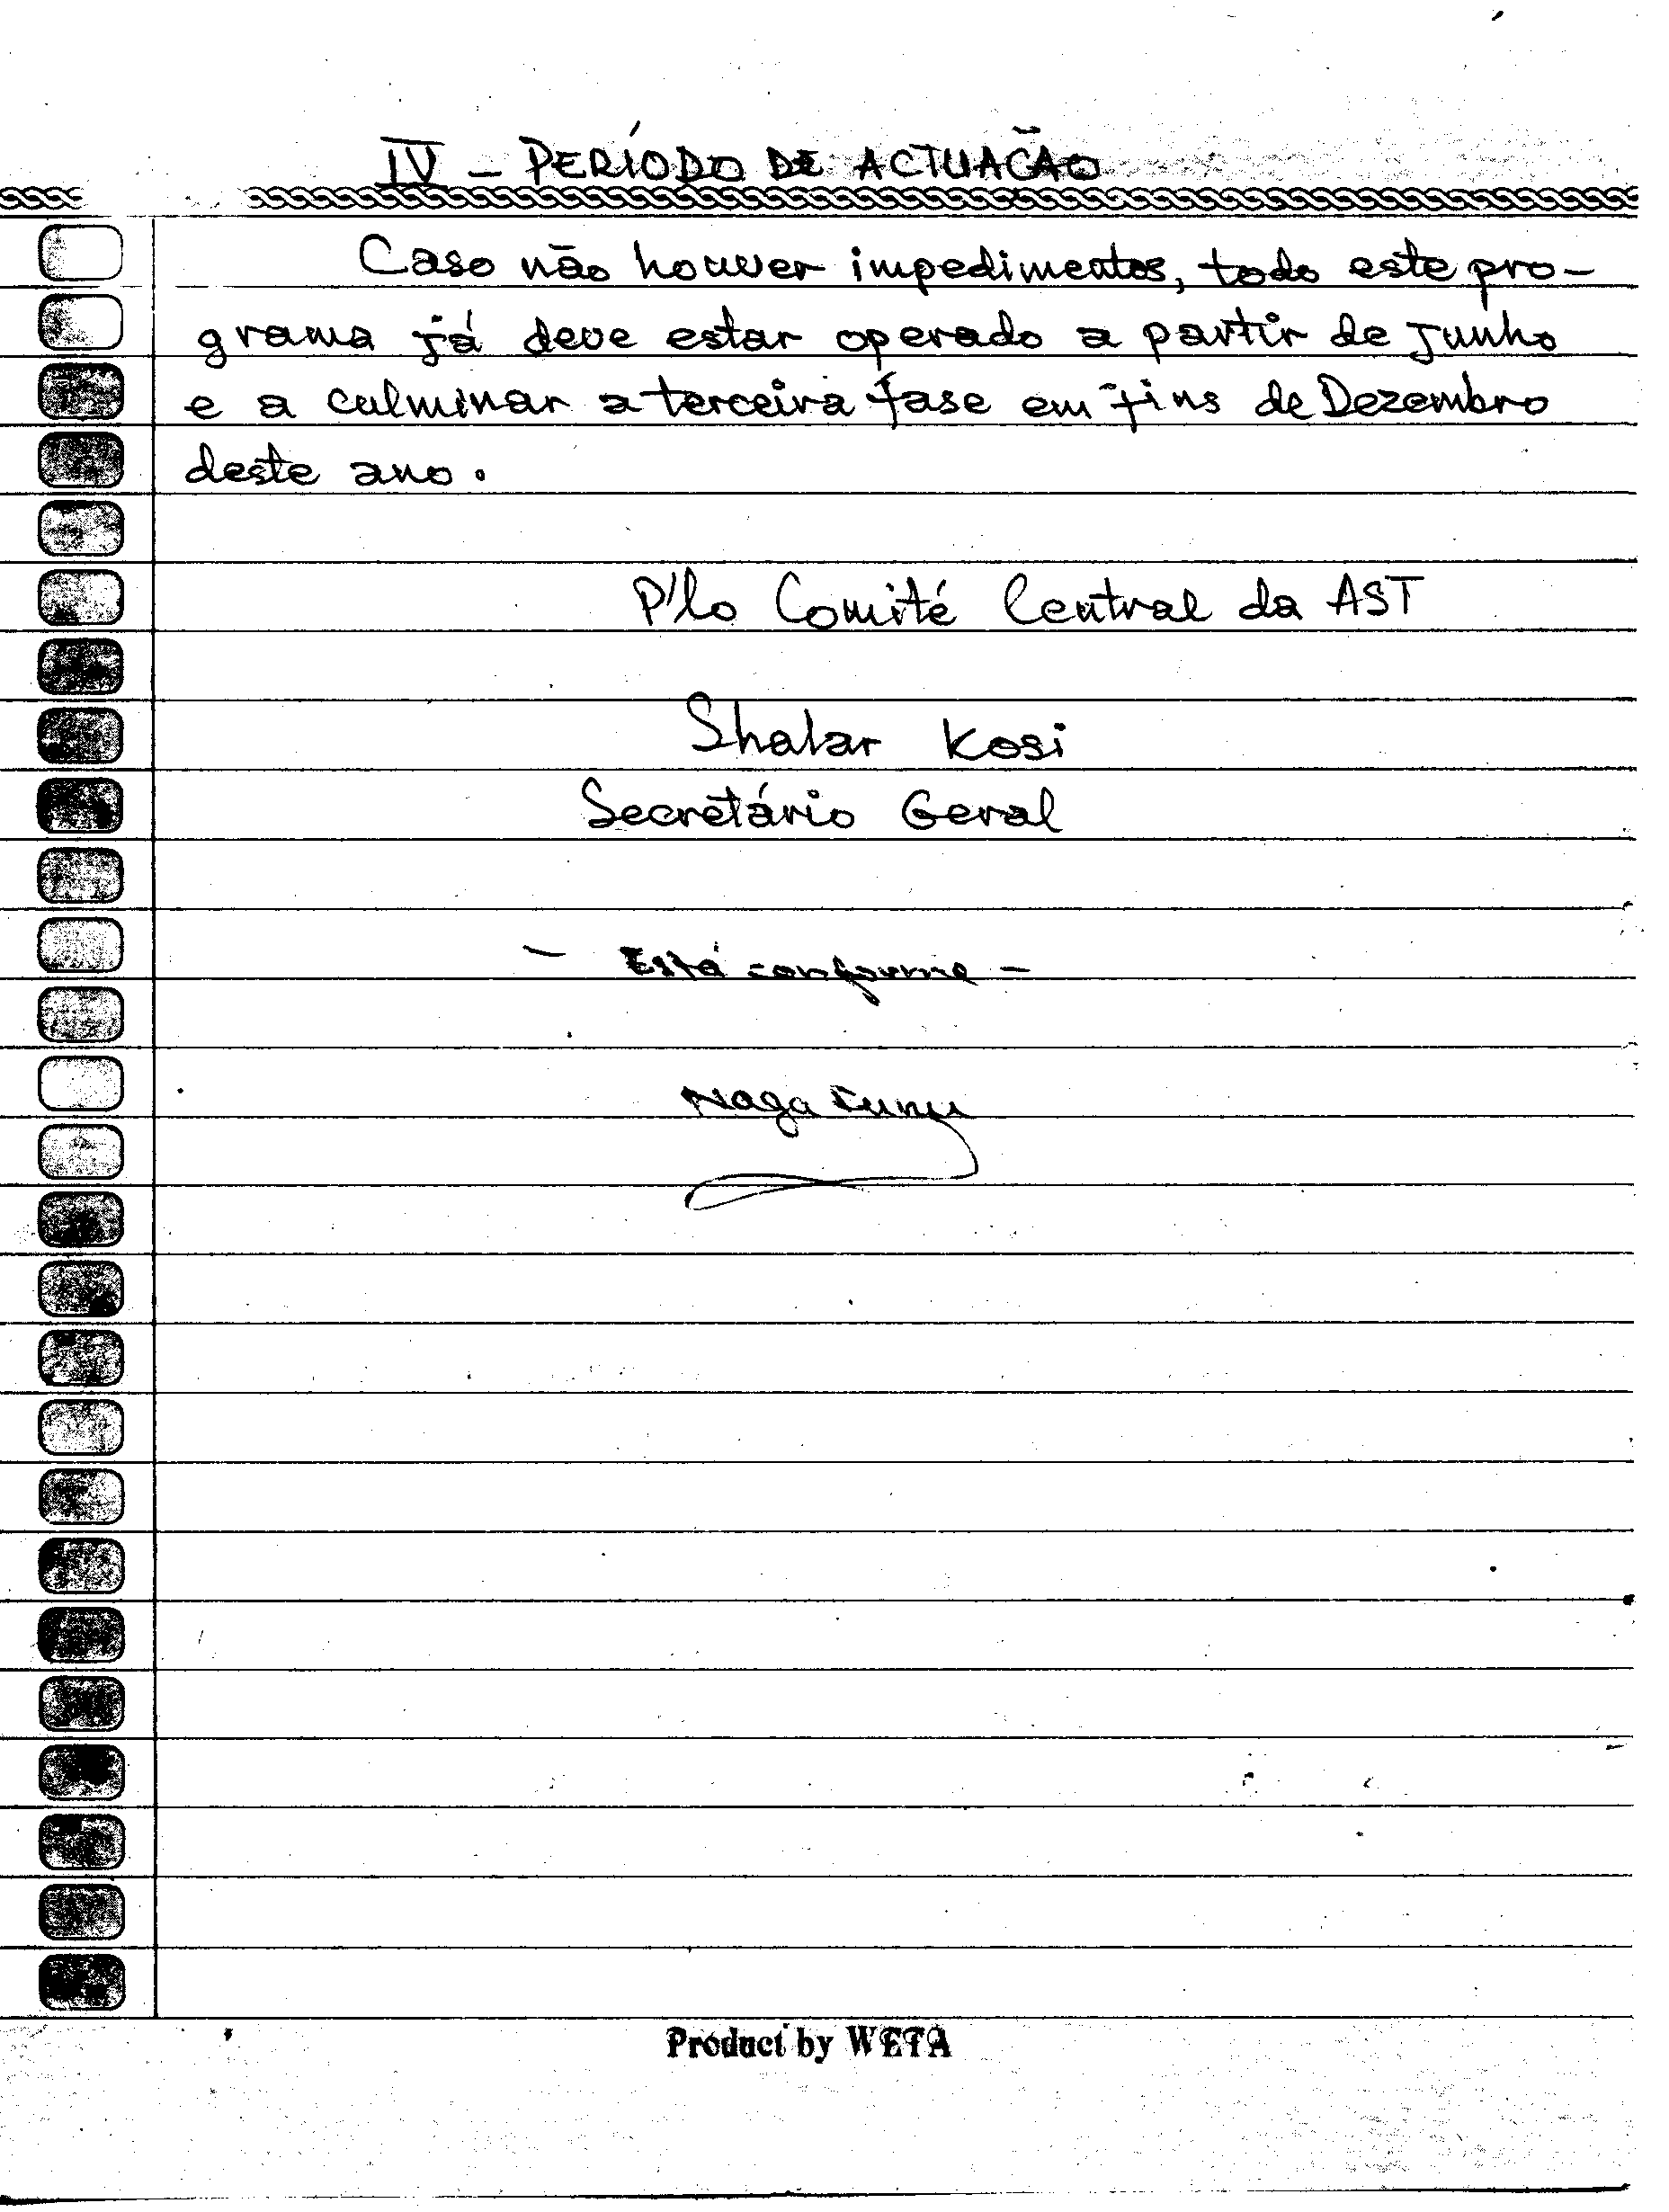 IV - PERÍODO DE ACTUAÇÃO
Caso não houver impedimentos, todo este pro-
grama já deve estar operado a partir de Junho
e a culminar a terceira fase em fins de Dezembro
deste ano.
P'lo Comité Central da AST
Shalar Kosi
Secretário Geral
- Está conforme -
Product by WETA